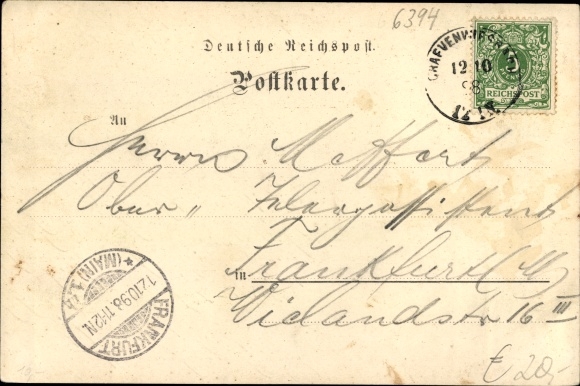 6394
Deutsche Reichspost.
Postkarte.
GRAEVENWIESBACH
12 10
98
12 1N.
5
REICHSPOST
An
Herrn Meffert
Ober " Telegr. Assistent
in Frankfurt (M)
Wielandstr 16 III
FRANKFURT
12.10.98. 11-12N.
* (MAIN) 1.
€ 20,-